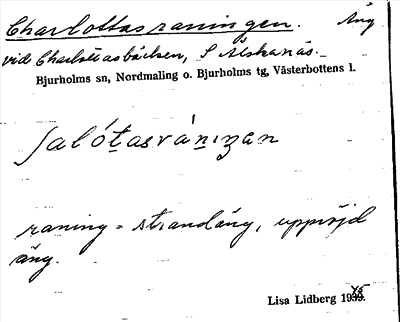 Charlottasraningen. Äng
vid Charlottasbäcken, S Älskanäs.
Bjurholms sn, Nordmaling o. Bjurholms tg, Västerbottens l.
raning = strandäng, uppröjd
äng.
Lisa Lidberg 1945